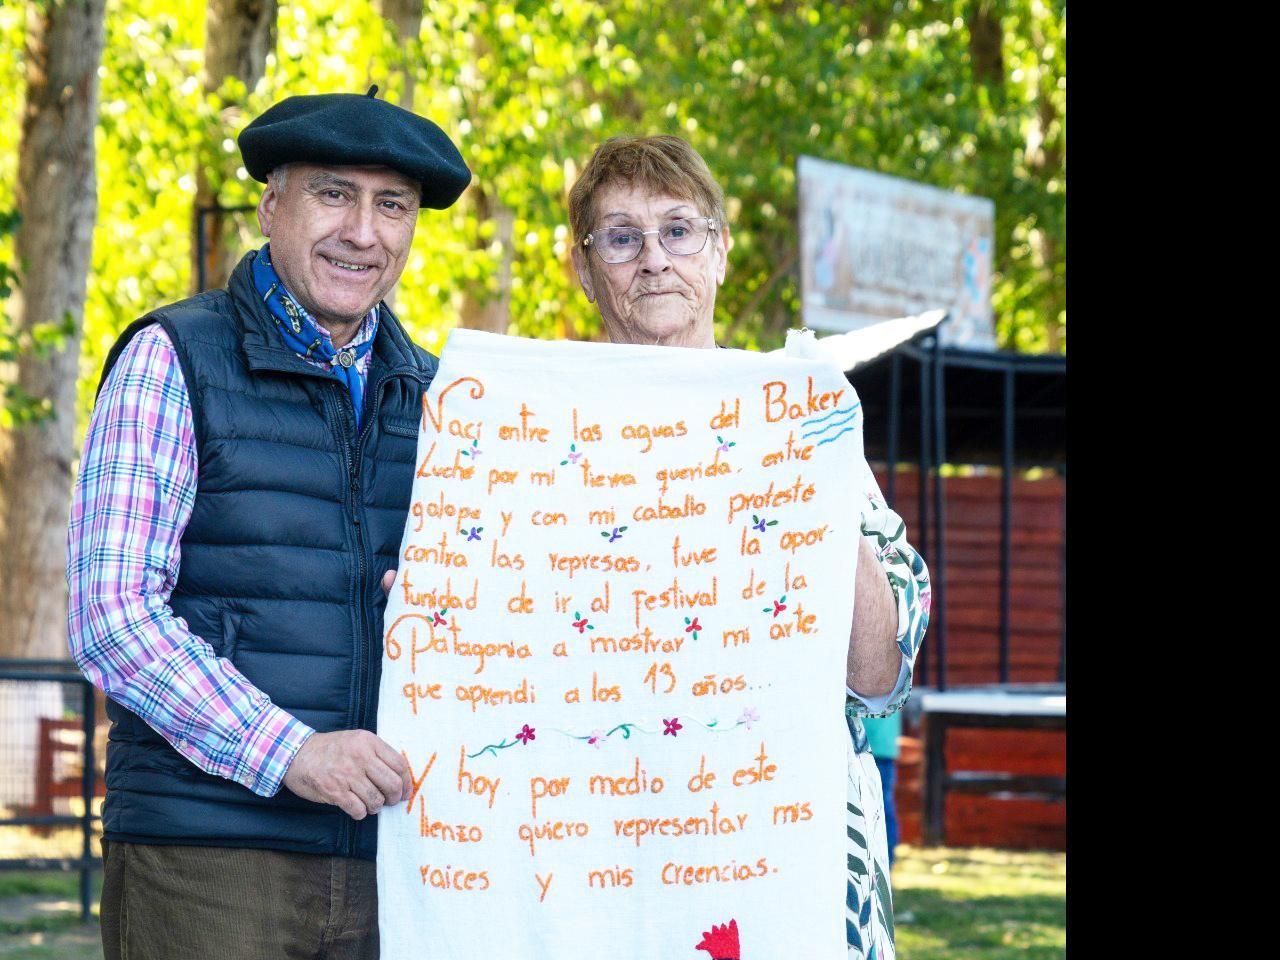 Nací entre las aguas del Baker
Luché por mi tierra querida, entre
galope y con mi caballo protesté
contra las represas, tuve la opor-
tunidad de ir al festival de la
Patagonia a mostrar mi arte,
que aprendi a los 13 años...
Y hoy por medio de este
lienzo quiero representar mis
raices y mis creencias.